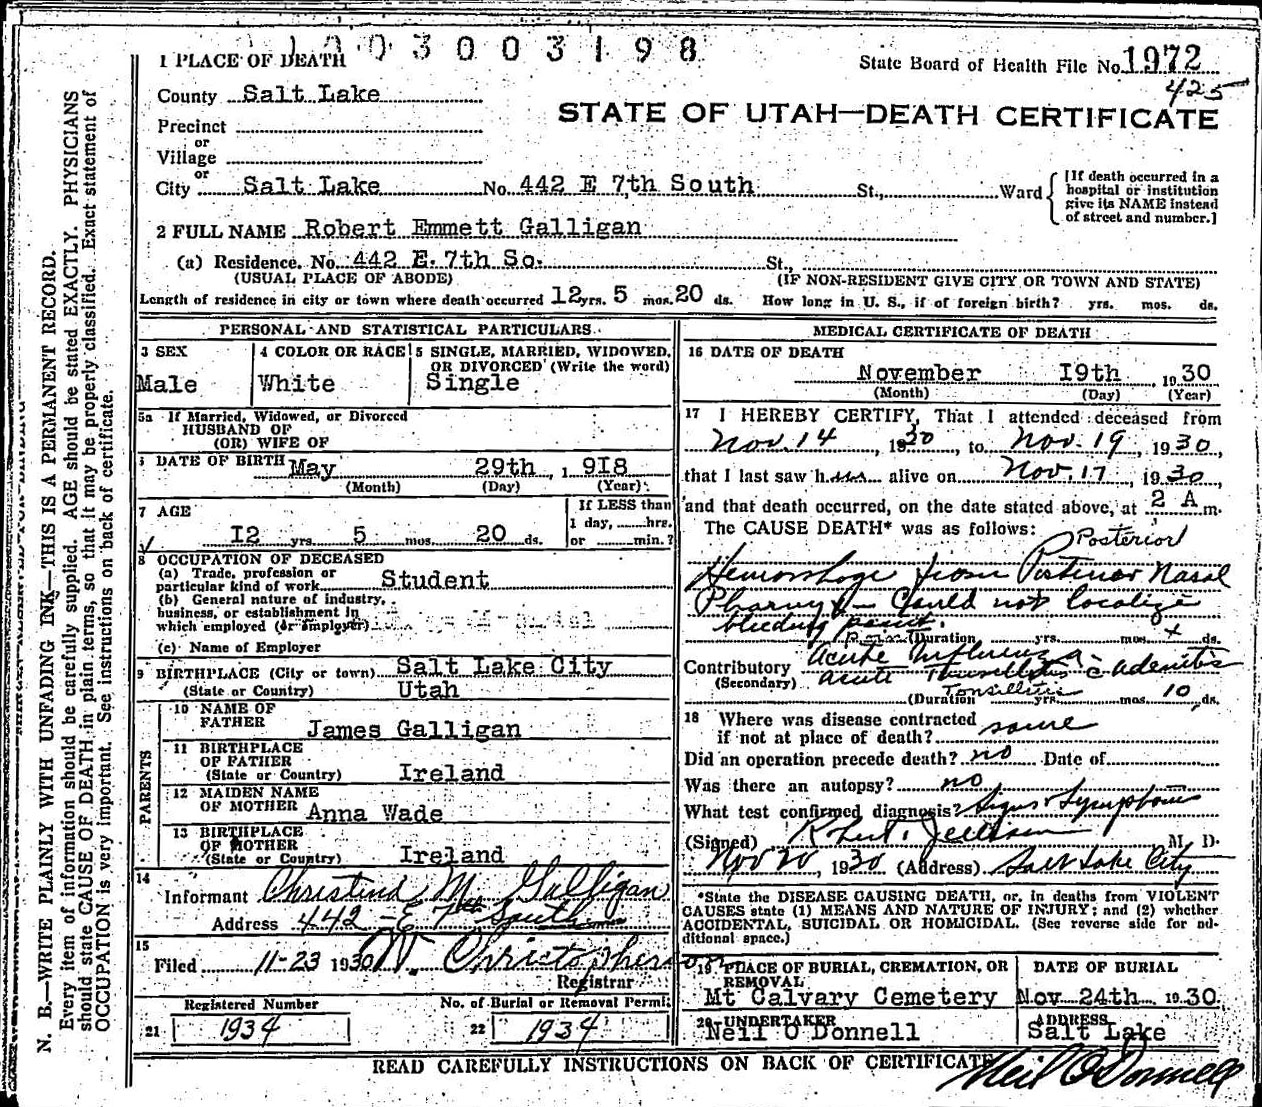 1003003198
1 PLACE OF DEATH
State Board of Health File No. 1972
425
County Salt Lake
STATE OF UTAH—DEATH CERTIFICATE
Precinct
or
Village
or
City Salt Lake No. 442 E 7th South St., Ward
[If death occurred in a
hospital or institution
give its NAME instead
of street and number.]
2 FULL NAME Robert Emmett Galligan
(a) Residence. No. 442 E. 7th So. St.,
(USUAL PLACE OF ABODE) (IF NON-RESIDENT GIVE CITY OR TOWN AND STATE)
Length of residence in city or town where death occurred 12 yrs. 5 mos. 20 ds. How long in U. S., if of foreign birth? yrs. mos. ds.
PERSONAL AND STATISTICAL PARTICULARS
3 SEX
Male
4 COLOR OR RACE
White
5 SINGLE, MARRIED, WIDOWED,
OR DIVORCED (Write the word)
Single
5a If Married, Widowed, or Divorced
HUSBAND OF
(OR) WIFE OF
DATE OF BIRTH May 29th, 1918
(Month) (Day) (Year)
7 AGE
I2 yrs. 5 mos. 20 ds.
If LESS than
1 day, hrs.
or min.?
8 OCCUPATION OF DECEASED
(a) Trade, profession or
particular kind of work Student
(b) General nature of industry,
business, or establishment in
which employed (or employer)
(c) Name of Employer
9 BIRTHPLACE (City or town) Salt Lake City
(State or Country) Utah
PARENTS
10 NAME OF
FATHER James Galligan
11 BIRTHPLACE
OF FATHER
(State or Country) Ireland
12 MAIDEN NAME
OF MOTHER Anna Wade
13 BIRTHPLACE
OF MOTHER
(State or Country) Ireland
14
Informant Christina M. Galligan
Address 442 - E 7th South
15
Filed 11-23 1930 W. Christopherson
Registrar
Registered Number
21 1934
No. of Burial or Removal Permit
22 1934
MEDICAL CERTIFICATE OF DEATH
16 DATE OF DEATH
November I9th, 1930
(Month) (Day) (Year)
17 I HEREBY CERTIFY, That I attended deceased from
Nov. 14, 1930, to Nov. 19, 1930,
that I last saw him alive on Nov. 17, 1930,
and that death occurred, on the date stated above, at 2 A m.
The CAUSE DEATH* was as follows:
Posterior
Hemorrhage from Posterior Nasal
Pharynx - Could not localize
bleeding point.
(Duration yrs. mos. ds.
Contributory Acute Influenza
(Secondary) acute Tonsillitis c adenitis
Tonsillitis
(Duration yrs. mos. 10 ds.
18 Where was disease contracted
if not at place of death? same
Did an operation precede death? no Date of
Was there an autopsy? no
What test confirmed diagnosis? Signs & Symptoms
(Signed) Robert. Jellison M. D.
Nov 20, 1930 (Address) Salt Lake City
*State the DISEASE CAUSING DEATH, or, in deaths from VIOLENT
CAUSES state (1) MEANS AND NATURE OF INJURY; and (2) whether
ACCIDENTAL, SUICIDAL OR HOMICIDAL. (See reverse side for ad-
ditional space.)
19 PLACE OF BURIAL, CREMATION, OR
REMOVAL
Mt Calvary Cemetery
DATE OF BURIAL
Nov 24th 1930
20 UNDERTAKER
Neil O'Donnell
ADDRESS
Salt Lake
READ CAREFULLY INSTRUCTIONS ON BACK OF CERTIFICATE
Neil O'Donnell
N. B.—WRITE PLAINLY WITH UNFADING INK—THIS IS A PERMANENT RECORD.
Every item of information should be carefully supplied. AGE should be stated EXACTLY. PHYSICIANS
should state CAUSE OF DEATH in plain terms, so that it may be properly classified. Exact statement of
OCCUPATION is very important. See instructions on back of certificate.